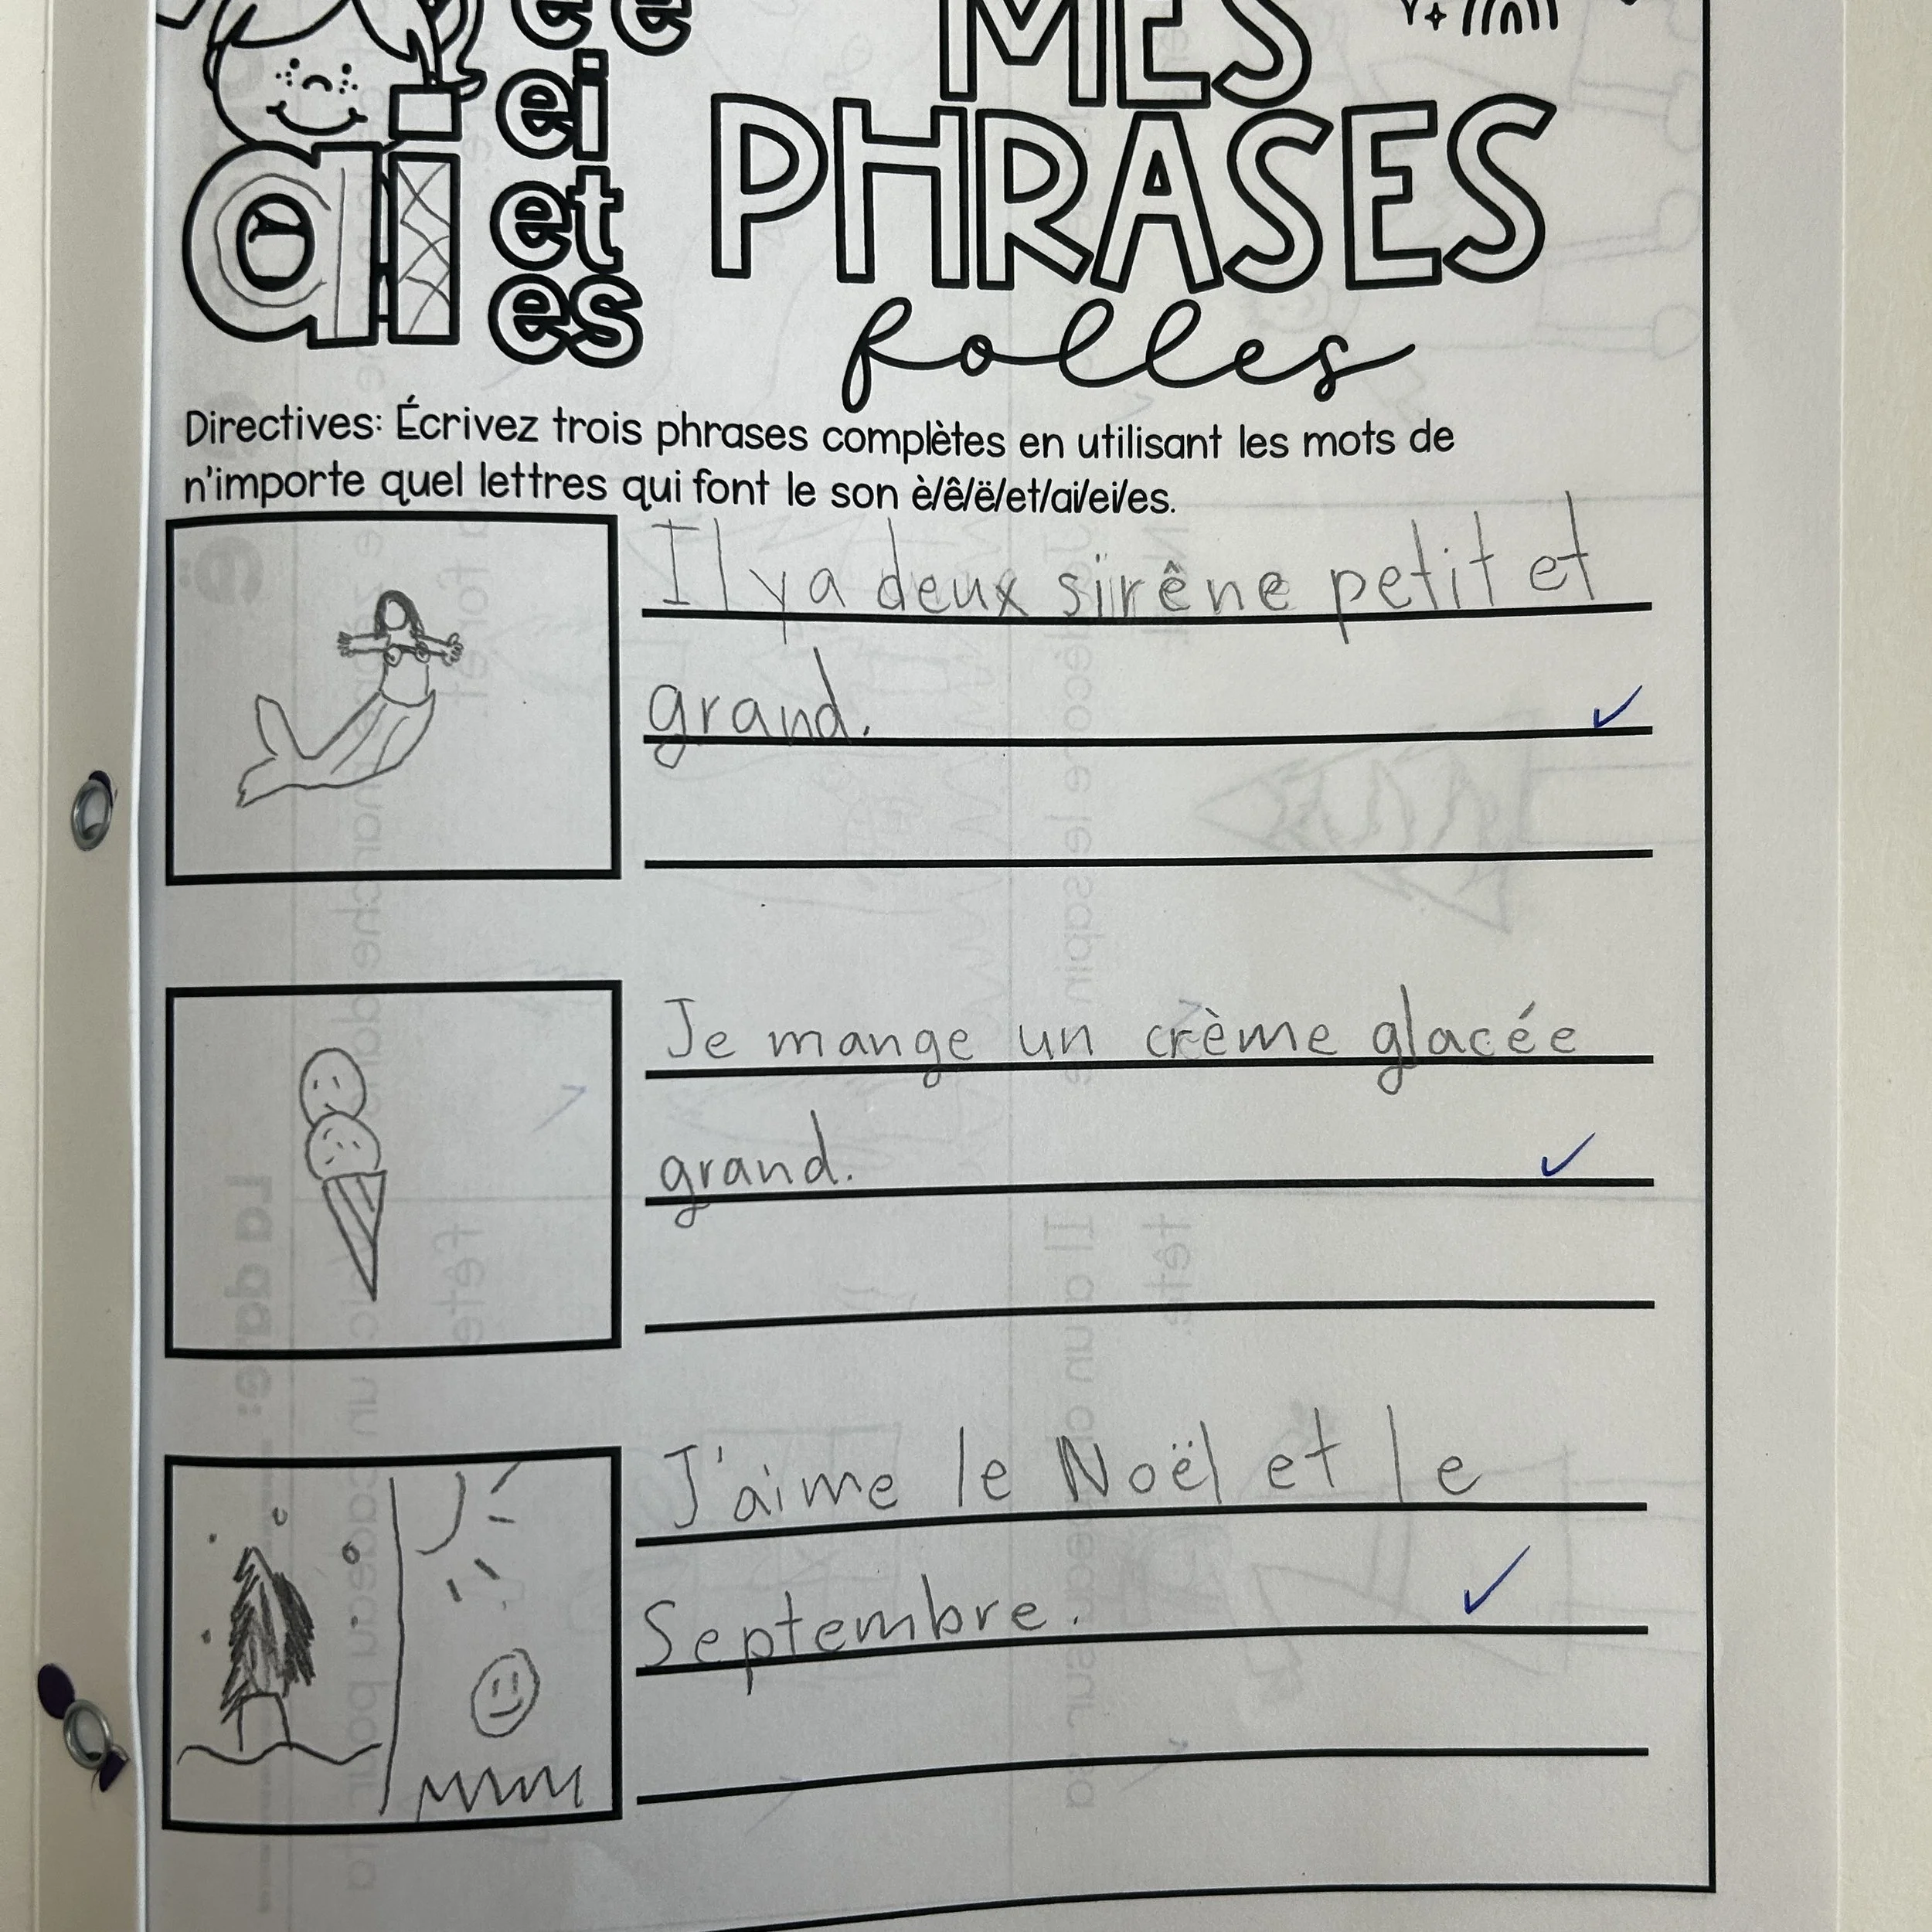 ei
et
es
ai
MES
PHRASES
folles
Directives: Écrivez trois phrases complètes en utilisant les mots de
n'importe quel lettres qui font le son è/ê/ë/et/ai/ei/es.
Il y a deux sirêne petit et
grand.
Je mange un crème glacée
grand.
J'aime le Noël et le
Septembre.